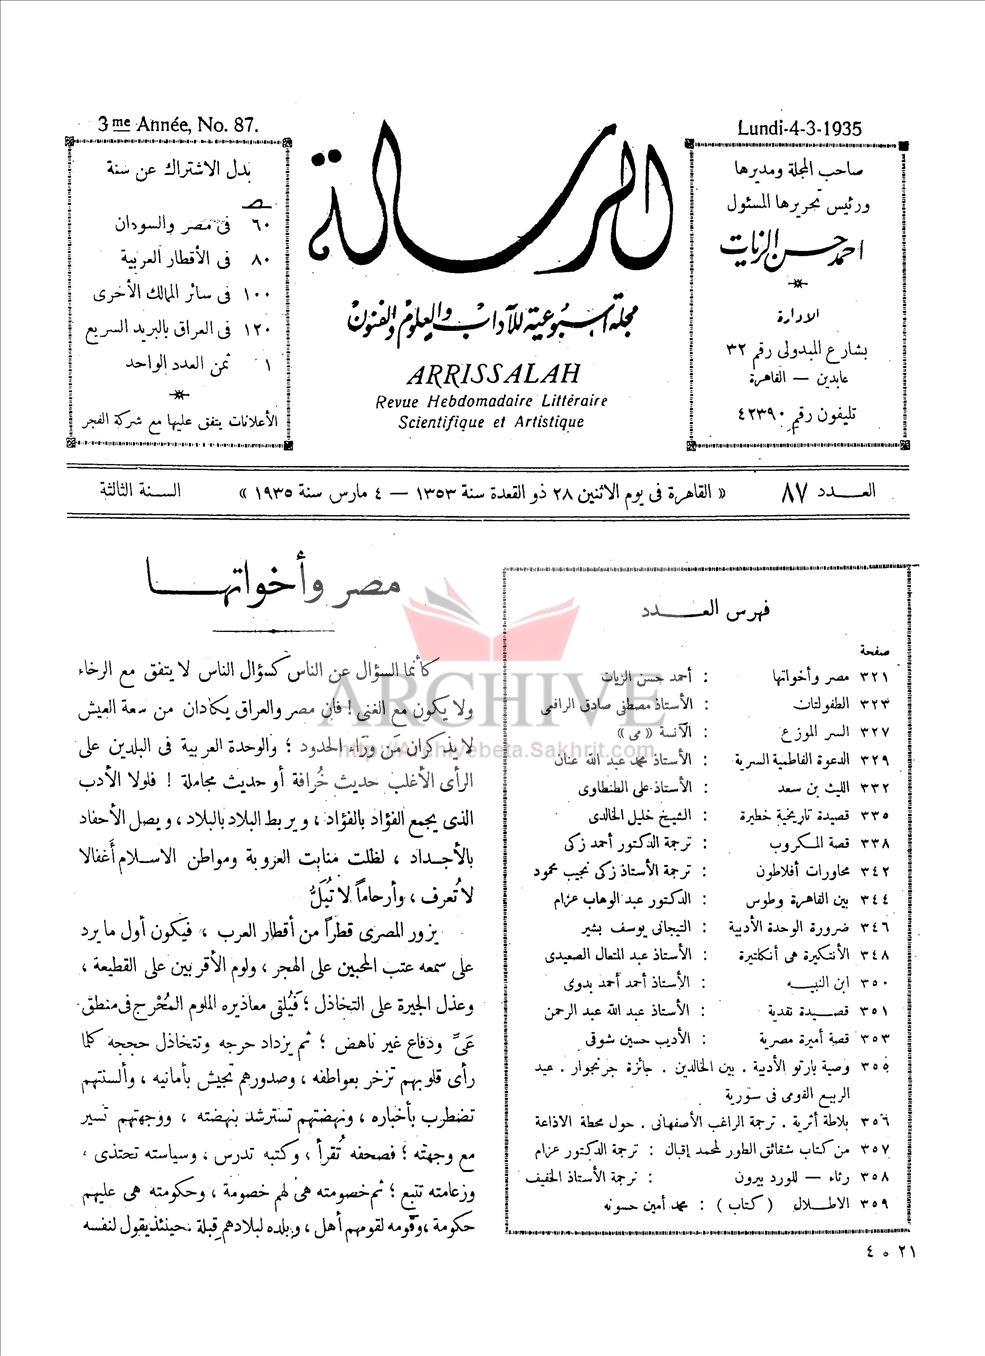 3me Année, No. 87.
Lundi-4-3-1935
صاحب المجلة ومديرها
ورئيس تحريرها المسئول
احمد حسن الزيات
الادارة
بشارع المبدولى رقم ٣٢
عابدين — القاهرة
تليفون رقم ٤٢٣٩٠
الرسالة
مجلة اسبوعية للآداب والعلوم والفنون
ARRISSALAH
Revue Hebdomadaire Littéraire
Scientifique et Artistique
بدل الاشتراك عن سنة
ص
٦٠ فى مصر والسودان
٨٠ فى الأقطار العربية
١٠٠ فى سائر الممالك الأخرى
١٢٠ فى العراق بالبريد السريع
١ ثمن العدد الواحد
الأعلانات يتفق عليها مع شركة الفجر
العـــدد ٨٧ « القاهرة فى يوم الاثنين ٢٨ ذو القعدة سنة ١٣٥٣ — ٤ مارس سنة ١٩٣٥ » السنة الثالثة
فهرس العـــدد
صفحة
٣٢١ مصر وأخواتها : أحمد حسن الزيات
٣٢٣ الطفولتان : الأستاذ مصطفى صادق الرافعى
٣٢٧ السر الموزع : الآنسة « مى »
٣٢٩ الدعوة الفاطمية السرية : الأستاذ محمد عبد الله عنان
٣٣٢ الليث بن سعد : الأستاذ على الطنطاوى
٣٣٥ قصيدة تاريخية خطيرة : الشيخ خليل الخالدى
٣٣٨ قصة المكروب : ترجمة الدكتور أحمد زكى
٣٤٢ محاورات أفلاطون : ترجمة الأستاذ زكى نجيب محمود
٣٤٤ بين القاهرة وطوس : الدكتور عبد الوهاب عزام
٣٤٦ ضرورة الوحدة الأدبية : التيجانى يوسف بشير
٣٤٨ الأنتكيرة هى أنكلتيرة : الأستاذ عبد المتعال الصعيدى
٣٥٠ ابن النبيـــه : الأستاذ أحمد أحمد بدوى
٣٥١ قصـــيدة نقدية : الأستاذ عبد الله عبد الرحمن
٣٥٣ قصة أميرة مصرية : الأديب حسين شوقى
٣٥٥ وصية بارتو الأدبية . بين الخالدين . جائزة جرنجوار . عيد
الربيع القومى فى سورية
٣٥٦ بلاطة أثرية . ترجمة الراغب الأصفهانى . حول محطة الاذاعة
٣٥٧ من كتاب شقائق الطور لمحمد إقبال : ترجمة الدكتور عزام
٣٥٨ رثاء — للورد بيرون : ترجمة الأستاذ الخفيف
٣٥٩ الاطـــلال ( كتاب ) : محمد أمين حسونه
٢١ ٥ ٤
مصر وأخواتهـــا
كأنما السؤال عن الناس كسؤال الناس لا يتفق مع الرخاء
ولا يكون مع الغنى ! فان مصر والعراق يكادان من سعة العيش
لا يذكران مَن وراء الحدود ؛ والوحدة العربية فى البلدين على
الرأى الأغلب حديث خُرافة أو حديث مجاملة ! فلولا الأدب
الذى يجمع الفؤاد بالفؤاد ، ويربط البلاد بالبلاد ، ويصل الأحفاد
بالأجداد ، لظلت منابت العروبة ومواطن الاسلام أغفالا
لا تُعرف ، وأرحاماً لا تُبَلُّ
يزور المصرى قطراً من أقطار العرب ، فيكون أول ما يرد
على سمعه عتب المحبين على الهجر ، ولوم الأقربين على القطيعة ،
وعذل الجيرة على التخاذل ؛ فيُلقى معاذيره الملوم المُحْرج فى منطق
عَىٍّ ودفاع غير ناهض ؛ ثم يزداد حرجه وتتخاذل حججه كلما
رأى قلوبهم تزخر بعواطفه ، وصدورهم تجيش بأمانيه ، وألسنتهم
تضطرب بأخباره ، ونهضتهم تسترشد بنهضته ، ووجهتهم تسير
مع وجهته ؛ فصحفه تُقرأ ، وكتبه تدرس ، وسياسته تحتذى ،
وزعامته تتبع ؛ ثم خصومته هى لهم خصومة ، وحكومته هى عليهم
حكومة ، وقومه لقومهم أهل ، وبلده لبلادهم قبلة . حينئذ يقول لنفسه
ARCHIVE
http://Archivebeta.Sakhrit.com